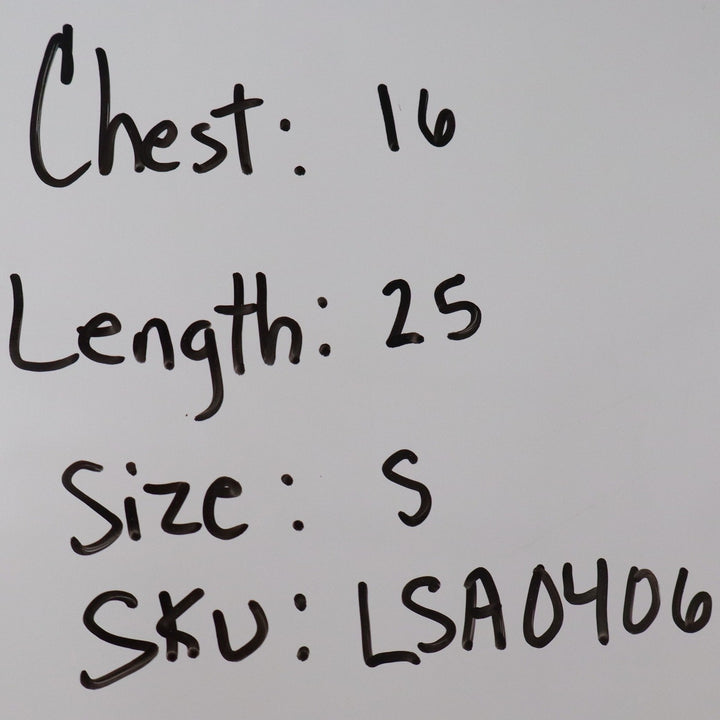 Chest: 16
Length: 25
Size: S
SKU: LSA0406